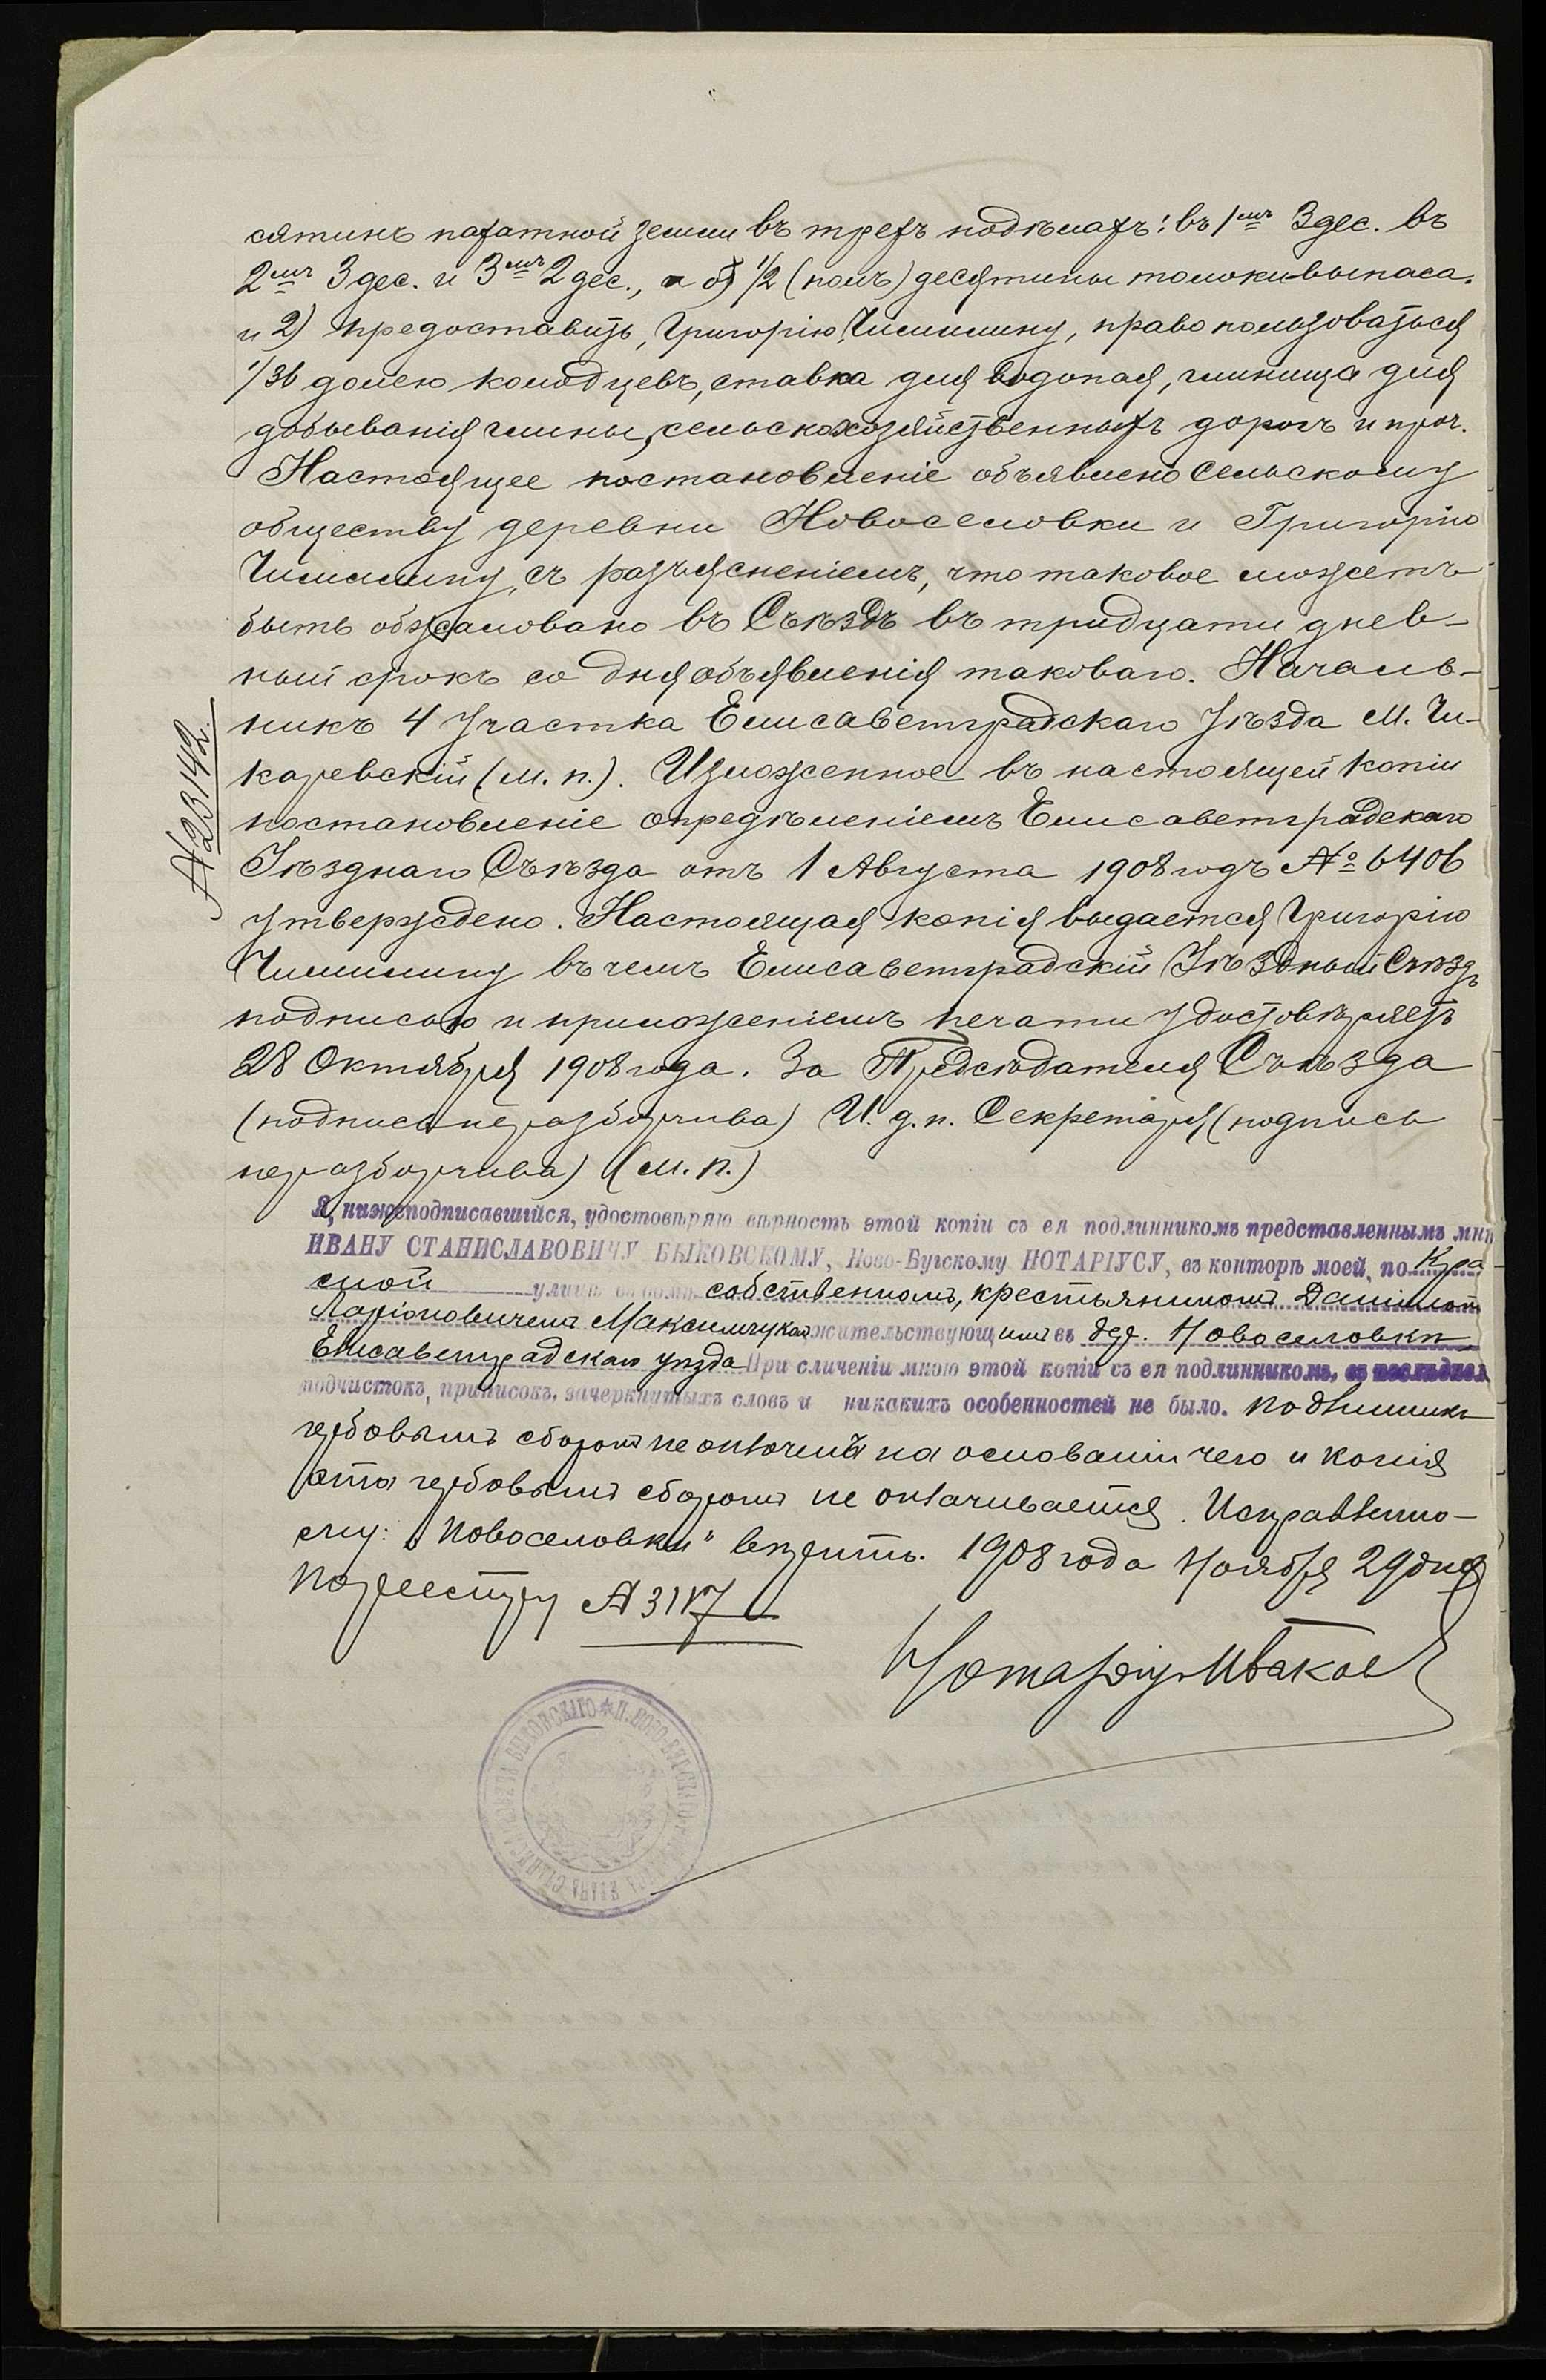 сятинъ пахатной земли въ трехъ подѣлахъ: въ 1мъ 3 дес. въ
2мъ 3 дес. и 3мъ 2 дес., а б) 1/2 (полъ) десятины толоки-выпаса.
и 2) предоставить, Григорію, право пользоваться
1/36 долею колодцевъ, ставка для водопая, глинища для
добыванія глины, сельскохозяйственныхъ дорогъ и проч.
Настоящее постановленіе объявлено сельскому
обществу деревни Новоселовки и Григорію
съ разъясненіемъ, что таковое можетъ
быть обжаловано въ Съѣздъ въ тридцати днев-
ный срокъ со дня объявленія таковаго. Началь-
никъ 4 участка Елисаветградскаго Уѣзда М. Чи-
каревскій (м. п.). Изложенное въ настоящей копіи
постановленіе опредѣленіемъ Елисаветградскаго
Уѣзднаго Съѣзда отъ 1 Августа 1908 годъ № 6406
утверждено. Настоящая копія выдается Григорію
въ чемъ Елисаветградскій Уѣздный Съѣздъ
подписью и приложеніемъ печати удостовѣряетъ
28 Октября 1908 года. За Предсѣдателя Съѣзда
(подпись неразборчива) И. д. п. Секретаря (подпись
неразборчива) (м. п.)
№ 23142.
Я, нижеподписавшійся, удостовѣряю вѣрность этой копіи съ ея подлинникомъ представленнымъ мнѣ
ИВАНУ СТАНИСЛАВОВИЧУ БЫКОВСКОМУ, Ново-Бугскому НОТАРІУСУ, въ конторѣ моей, по Кра
сной улицѣ въ домѣ собственномъ, крестьяниномъ Даніиломъ
Ларіоновичемъ Максимчукомъ жительствующимъ въ дер. Новоселовкѣ
Елисаветградскаго уѣзда При сличеніи мною этой копіи съ ея подлинникомъ, въ послѣднемъ
подчистокъ, приписокъ, зачеркнутыхъ словъ и никакихъ особенностей не было. Подлинникъ
гербовымъ сборомъ не оплоченъ на основаніи чего и копія
эта гербовымъ сборомъ не оплачивается. Исправленно-
му: "Новоселовки" вѣрить. 1908 года Ноября 29 дня
По реестру № 3117
Нотаріусъ